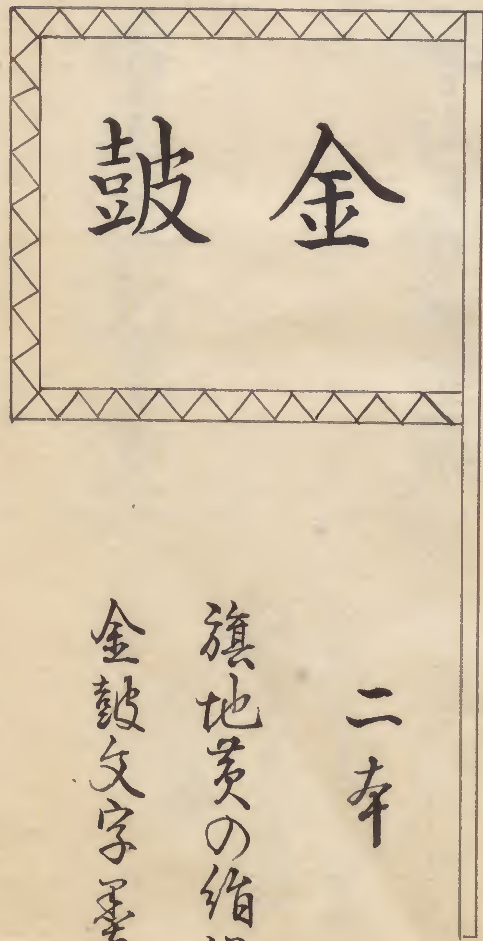 金皷
二本
旗地黄の絹
金皷文字墨